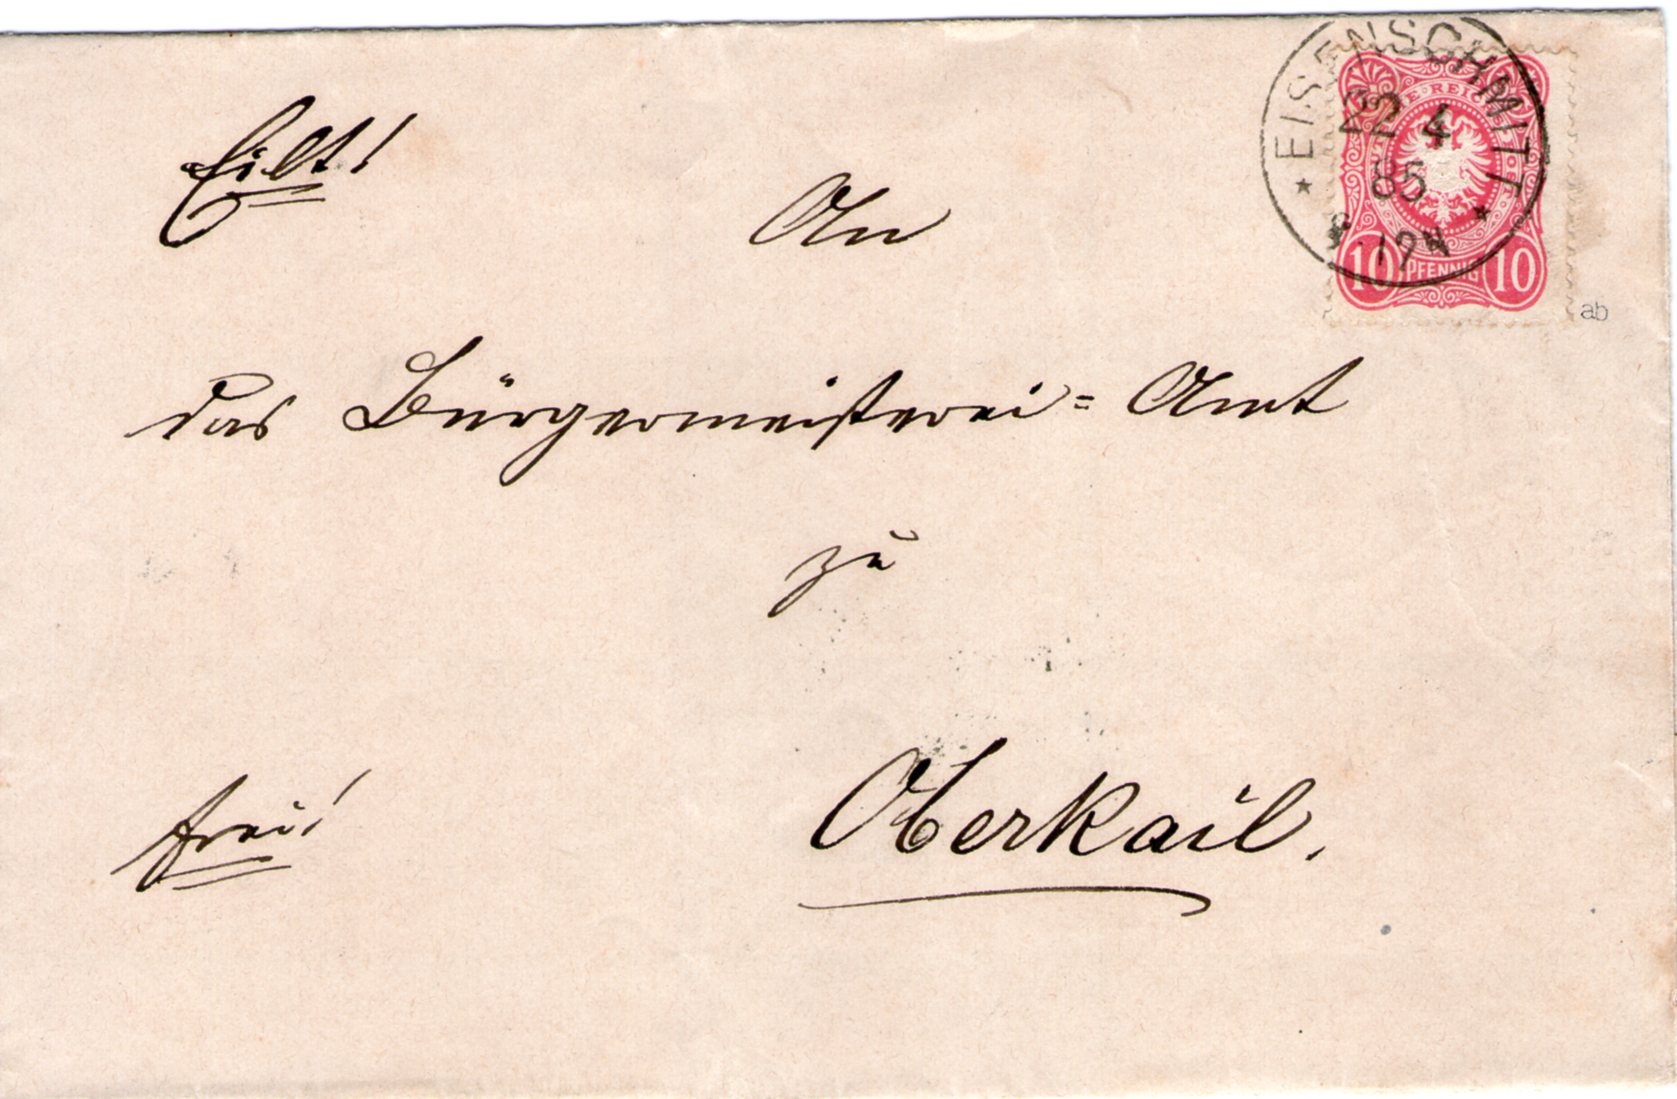 Eilt!
An
das Bürgermeisterei= Amt
zu
Oberkail.
frei!
* EISENSCHMITT *
22 4
85
12N
REICH
10 PFENNIG 10
ab